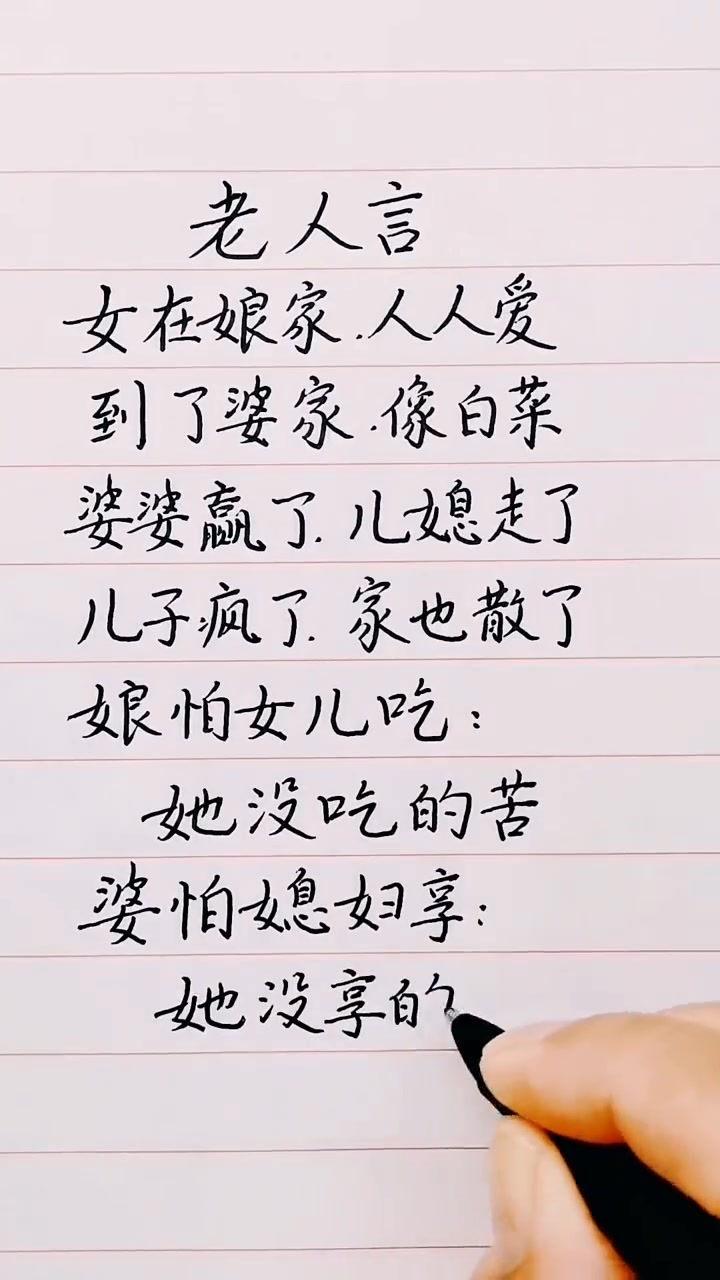 老人言
女在娘家.人人爱
到了婆家.像白菜
婆婆赢了.儿媳走了
儿子疯了.家也散了
娘怕女儿吃:
她没吃的苦
婆怕媳妇享:
她没享的